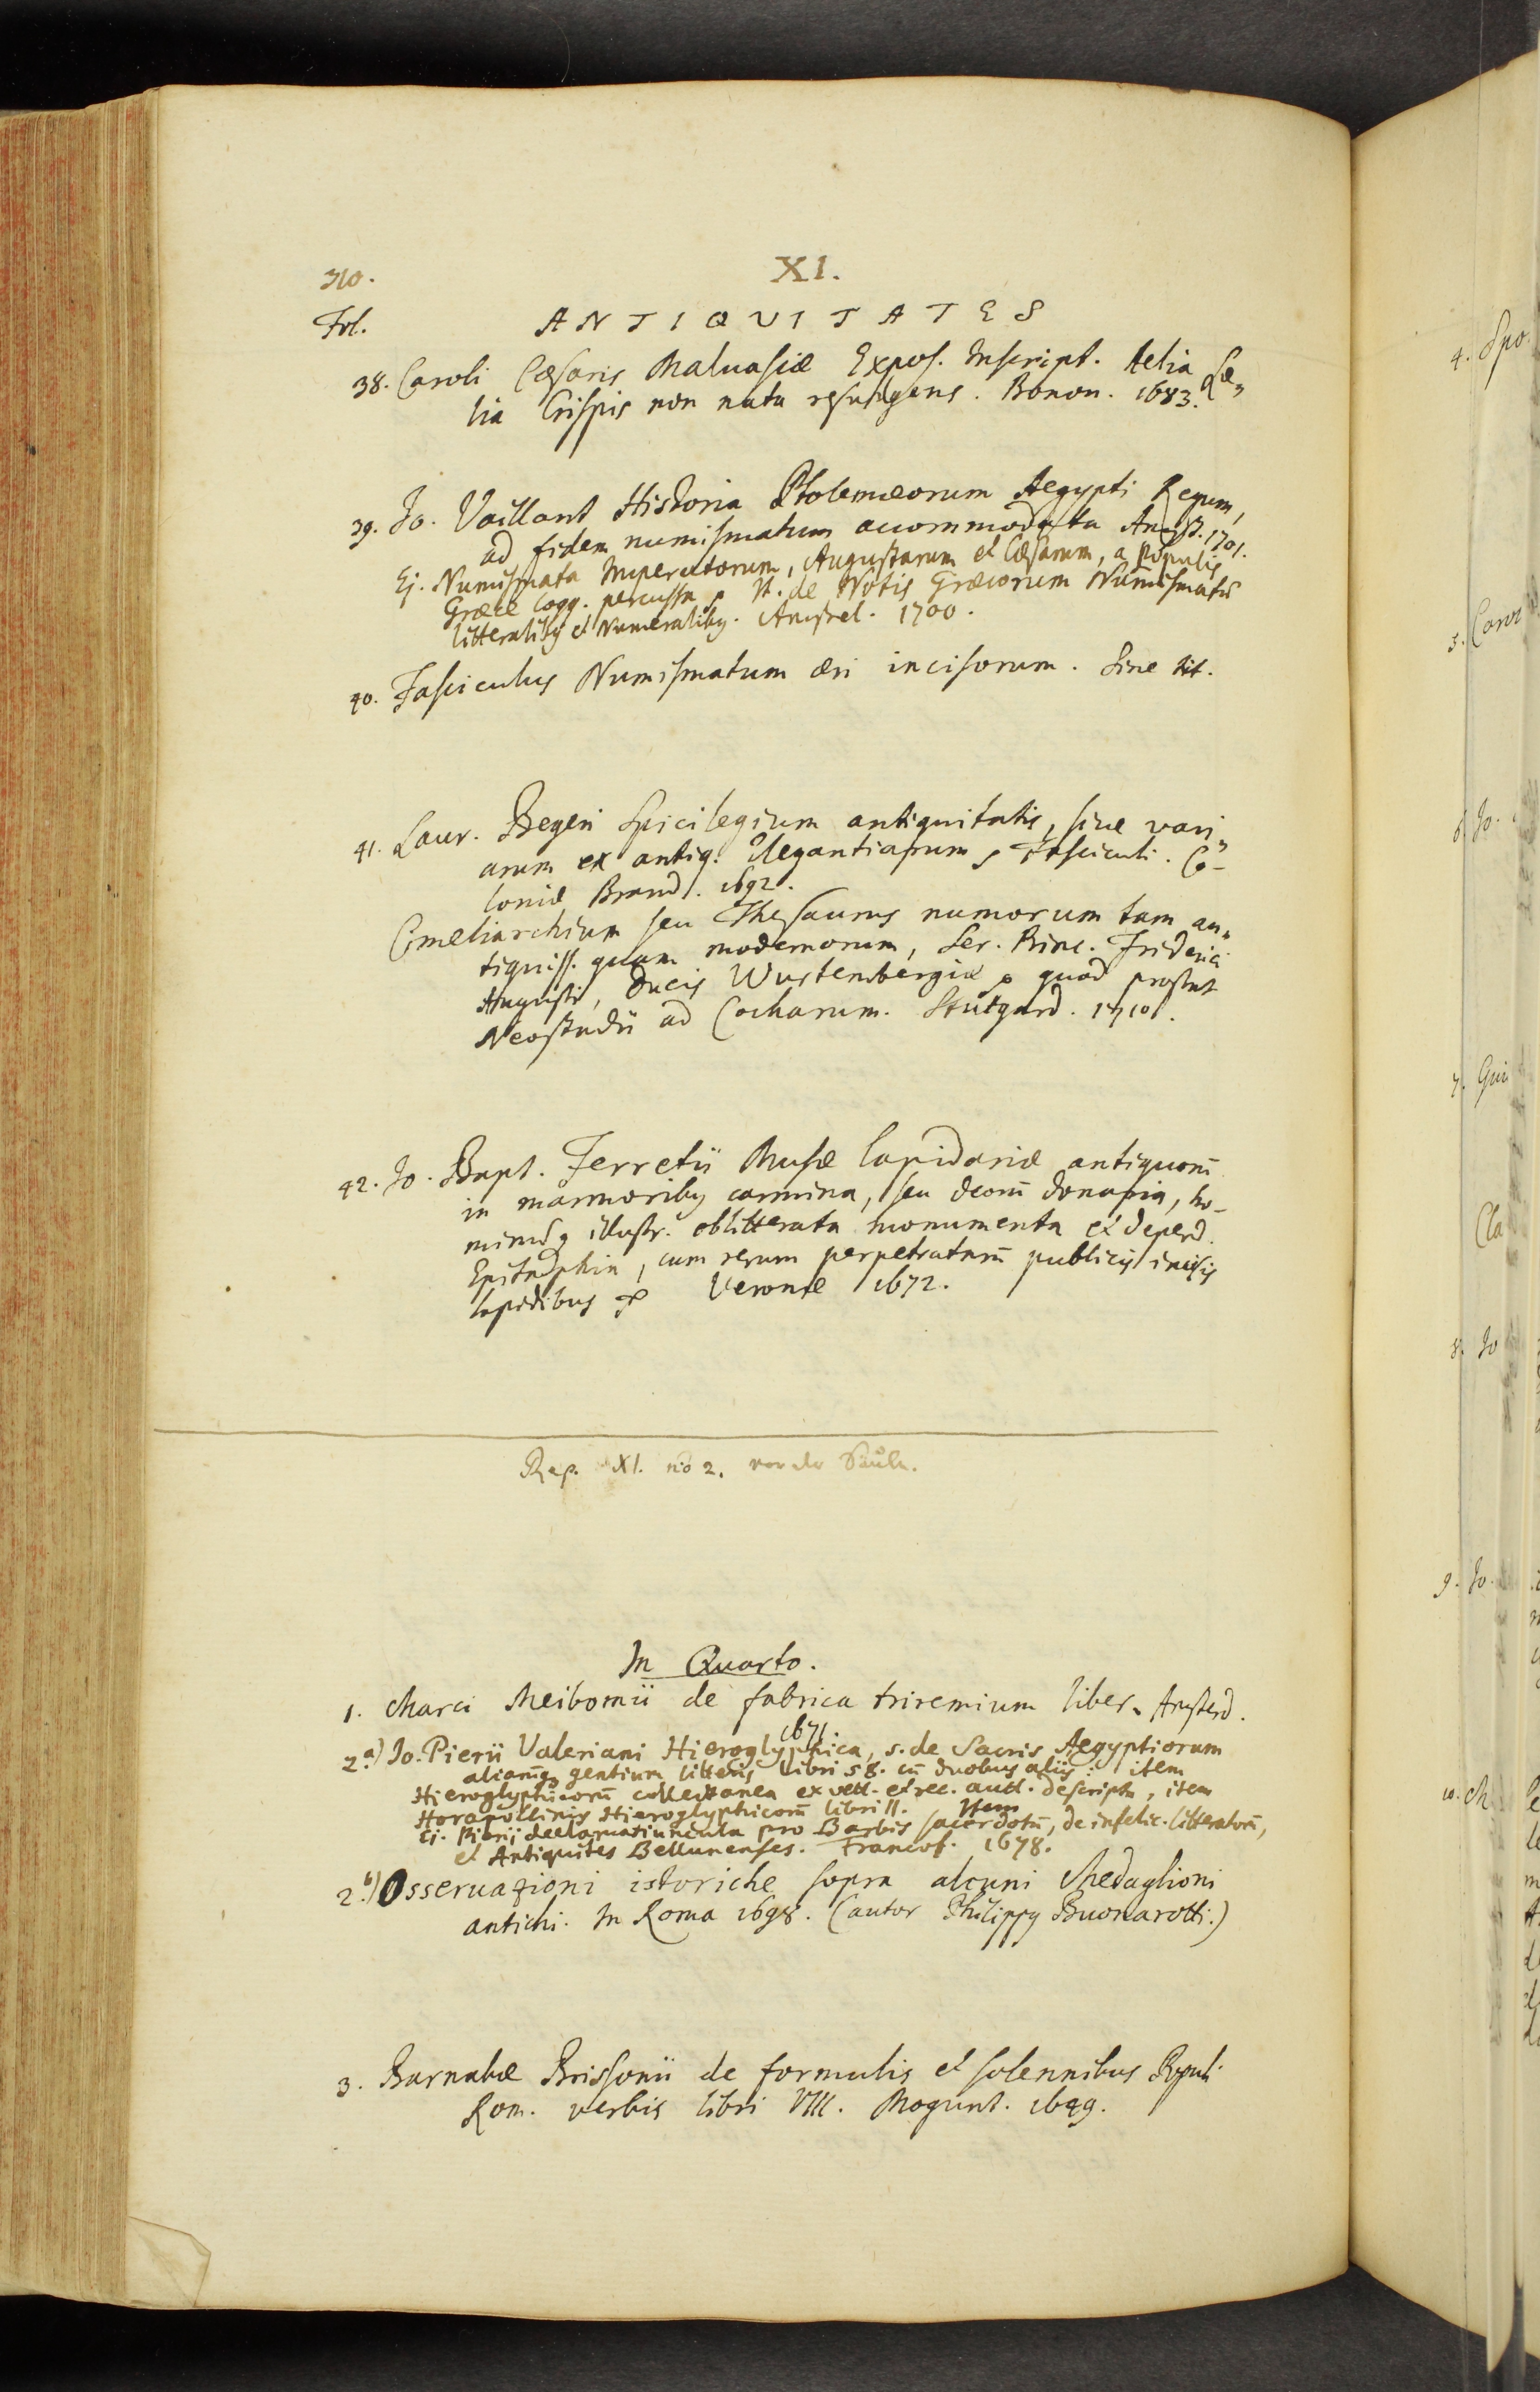 310.
XI.
Fol.
ANTIQUITATES
38. Caroli Cæsaris Malvasiæ Expos. Inscript. Aelia Læ„
lia Crispis non nata resurgens. Bonon. 1683.
39. Jo. Vaillant Historia Ptolemæorum Aegypti Regum,
ad fidem numismatum accommodata Amst. 1701.
Ej. Numismata Imperatorum, Augustarum et Cæsarum, a Populis
Græce loqq. percussa It. de Notis Græcorum Numismatū
litteraliby et Numeraliby. Amstel. 1700.
40. Fasciculus Numismatum æri incisorum. Sine tit.
41. Laur. Begeri Spicilegium antiquitatis, sive vari„
arum ex antiq. Elegantiarum, Fasciculi. Co-
loniæ Brand. 1692.
Cimeliarchium seu Thesaurus numorum tam an„
tiquiss. quam modernorum, Ser. Princ. Friderici
Augusti, Ducis Wurtenbergiæ quod prostat
Neostadii ad Cocharum. Stutgard. 1710.
42. Jo. Bapt. Ferretii Musæ lapidariæ antiquorū
in marmoriby carmina, seu deorū donaria, ho-
minūq illustr. oblitterata monumenta et deperd.
Epitaphia, cum rerum perpetratarū publicis incisis
lapidibus Veronæ 1672.
Rep. XI. no 2. vor der Säule.
In Quarto.
1. Marci Meibomii de fabrica triremium liber. Amsterd.
1671.
2.a) Jo. Pierii Valeriani Hieroglyphica, s. de Sacris Aegyptiorum
aliarūq gentium litteris libri 58. cū duobus aliis: item
Hieroglyphicorū collectanea ex vett. et rec. auct. descripta, item
Horapollinis Hieroglyphicorū libri II. Item
Ej. Pierij declamatiuncula pro Barbis sacerdotū, de infelic. litteratorū,
et Antiquites Bellunenses. Francof. 1678.
2.b) Osservazioni istoriche sopra alcuni Medaglioni
antichi. In Roma 1698. (autor Philippy Buonarotti.)
3. Barnabæ Brissonii de formulis et solennibus Populi
Rom. verbis libri VIII. Mogunt. 1649.
4. Spo
5. Carol
6. Jo.
7. Gui
Cla
8. Jo
9. Jo.
10. Ch